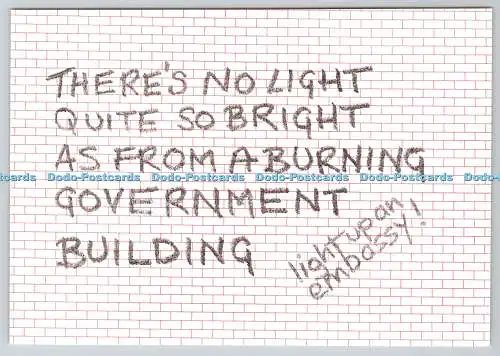 THERE'S NO LIGHT
QUITE SO BRIGHT
AS FROM A BURNING
Dodo-Postcards Dodo-Postcards Dodo-Postcards Dodo-Postcards Dodo-Postcards
GOVERNMENT
BUILDING
light up an
embassy!